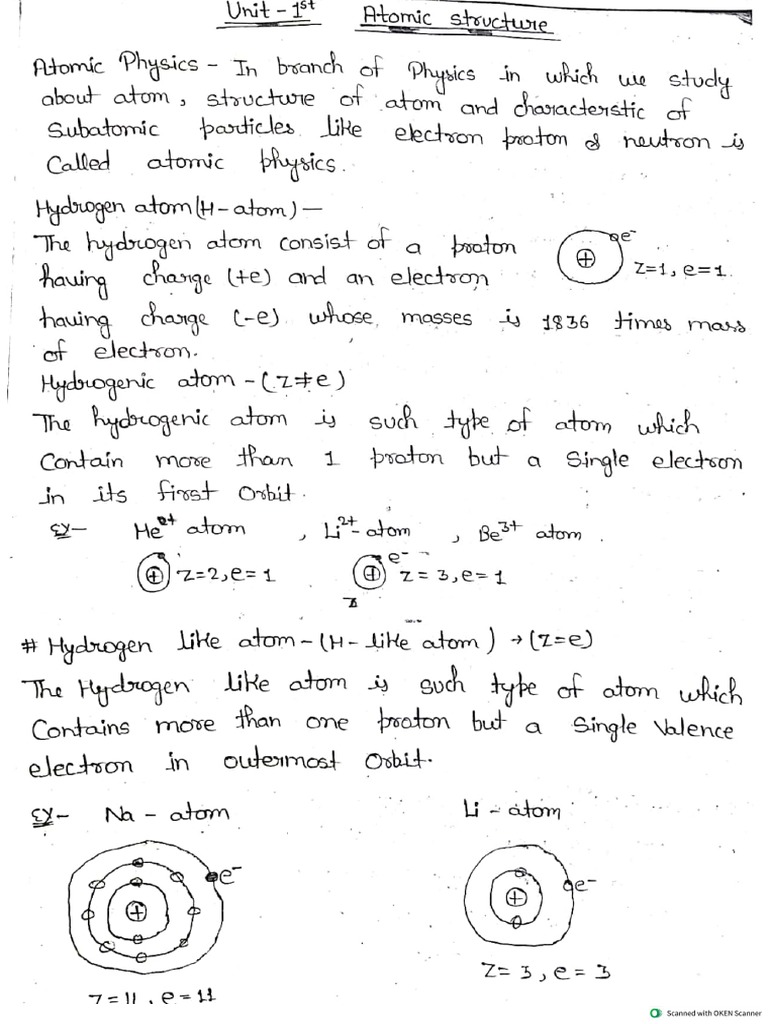 Unit - 1st   Atomic structure
Atomic Physics - In branch of Physics in which we study
about atom, structure of atom and characterstic of
Subatomic particles like electron proton & neutron is
Called atomic physics.
Hydrogen atom (H-atom) —
The hydrogen atom consist of a proton
having charge (+e) and an electron
e-
+
Z=1, e=1
having charge (-e) whose masses is 1836 times mass
of electron.
Hydrogenic atom - (Z≠e)
The hydrogenic atom is such type of atom which
Contain more than 1 proton but a Single electron
in its first Orbit.
Ex- He2+ atom , Li2+-atom , Be3+ atom.
+ Z=2, e=1   e- + Z=3, e=1
z
# Hydrogen like atom - (H-like atom) → (Z=e)
The Hydrogen like atom is such type of atom which
Contains more than one proton but a Single Valence
electron in outermost Orbit.
Ex- Na - atom   Li - atom
e- + e- +
Z=11, e=11   Z=3, e=3
Scanned with OKEN Scanner